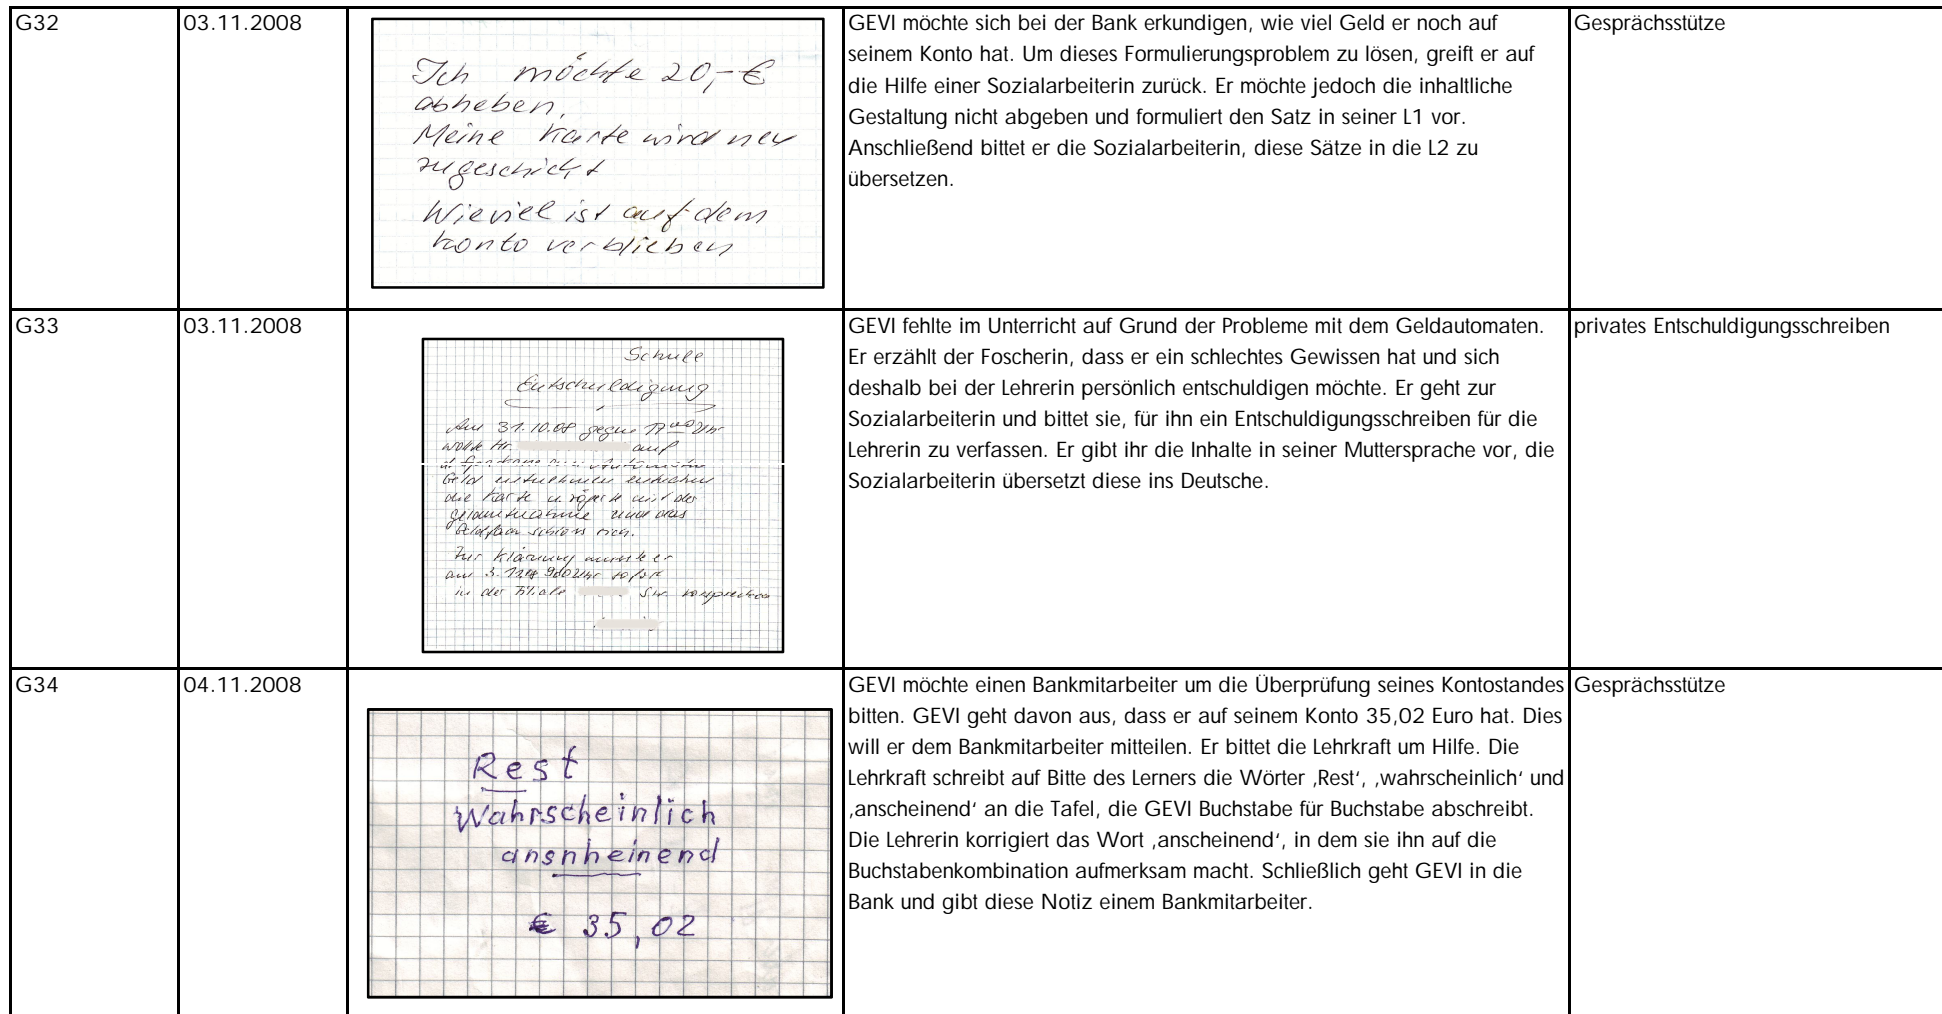 G32
03.11.2008
Ich möchte 20,-€
abheben,
Meine Karte wird neu
zugeschickt
Wieviel ist auf dem
Konto verblieben
GEVI möchte sich bei der Bank erkundigen, wie viel Geld er noch auf
seinem Konto hat. Um dieses Formulierungsproblem zu lösen, greift er auf
die Hilfe einer Sozialarbeiterin zurück. Er möchte jedoch die inhaltliche
Gestaltung nicht abgeben und formuliert den Satz in seiner L1 vor.
Anschließend bittet er die Sozialarbeiterin, diese Sätze in die L2 zu
übersetzen.
Gesprächsstütze
G33
03.11.2008
Schule
Entschuldigung
Am 31.10.08 gegen 17 00 Uhr
wollte Hr. auf
Geld entnehmen
die Karte u. zögerte mit der
Geldentnahme und das
Geldfach schloss sich.
Zur Klärung musste er
am 3. 9 00 Uhr sofort
in der Filiale vorsprechen
GEVI fehlte im Unterricht auf Grund der Probleme mit dem Geldautomaten.
Er erzählt der Foscherin, dass er ein schlechtes Gewissen hat und sich
deshalb bei der Lehrerin persönlich entschuldigen möchte. Er geht zur
Sozialarbeiterin und bittet sie, für ihn ein Entschuldigungsschreiben für die
Lehrerin zu verfassen. Er gibt ihr die Inhalte in seiner Muttersprache vor, die
Sozialarbeiterin übersetzt diese ins Deutsche.
privates Entschuldigungsschreiben
G34
04.11.2008
Rest
Wahrscheinlich
ansnheinend
€ 35,02
GEVI möchte einen Bankmitarbeiter um die Überprüfung seines Kontostandes
bitten. GEVI geht davon aus, dass er auf seinem Konto 35,02 Euro hat. Dies
will er dem Bankmitarbeiter mitteilen. Er bittet die Lehrkraft um Hilfe. Die
Lehrkraft schreibt auf Bitte des Lerners die Wörter ‚Rest‘, ‚wahrscheinlich‘ und
‚anscheinend‘ an die Tafel, die GEVI Buchstabe für Buchstabe abschreibt.
Die Lehrerin korrigiert das Wort ‚anscheinend‘, in dem sie ihn auf die
Buchstabenkombination aufmerksam macht. Schließlich geht GEVI in die
Bank und gibt diese Notiz einem Bankmitarbeiter.
Gesprächsstütze